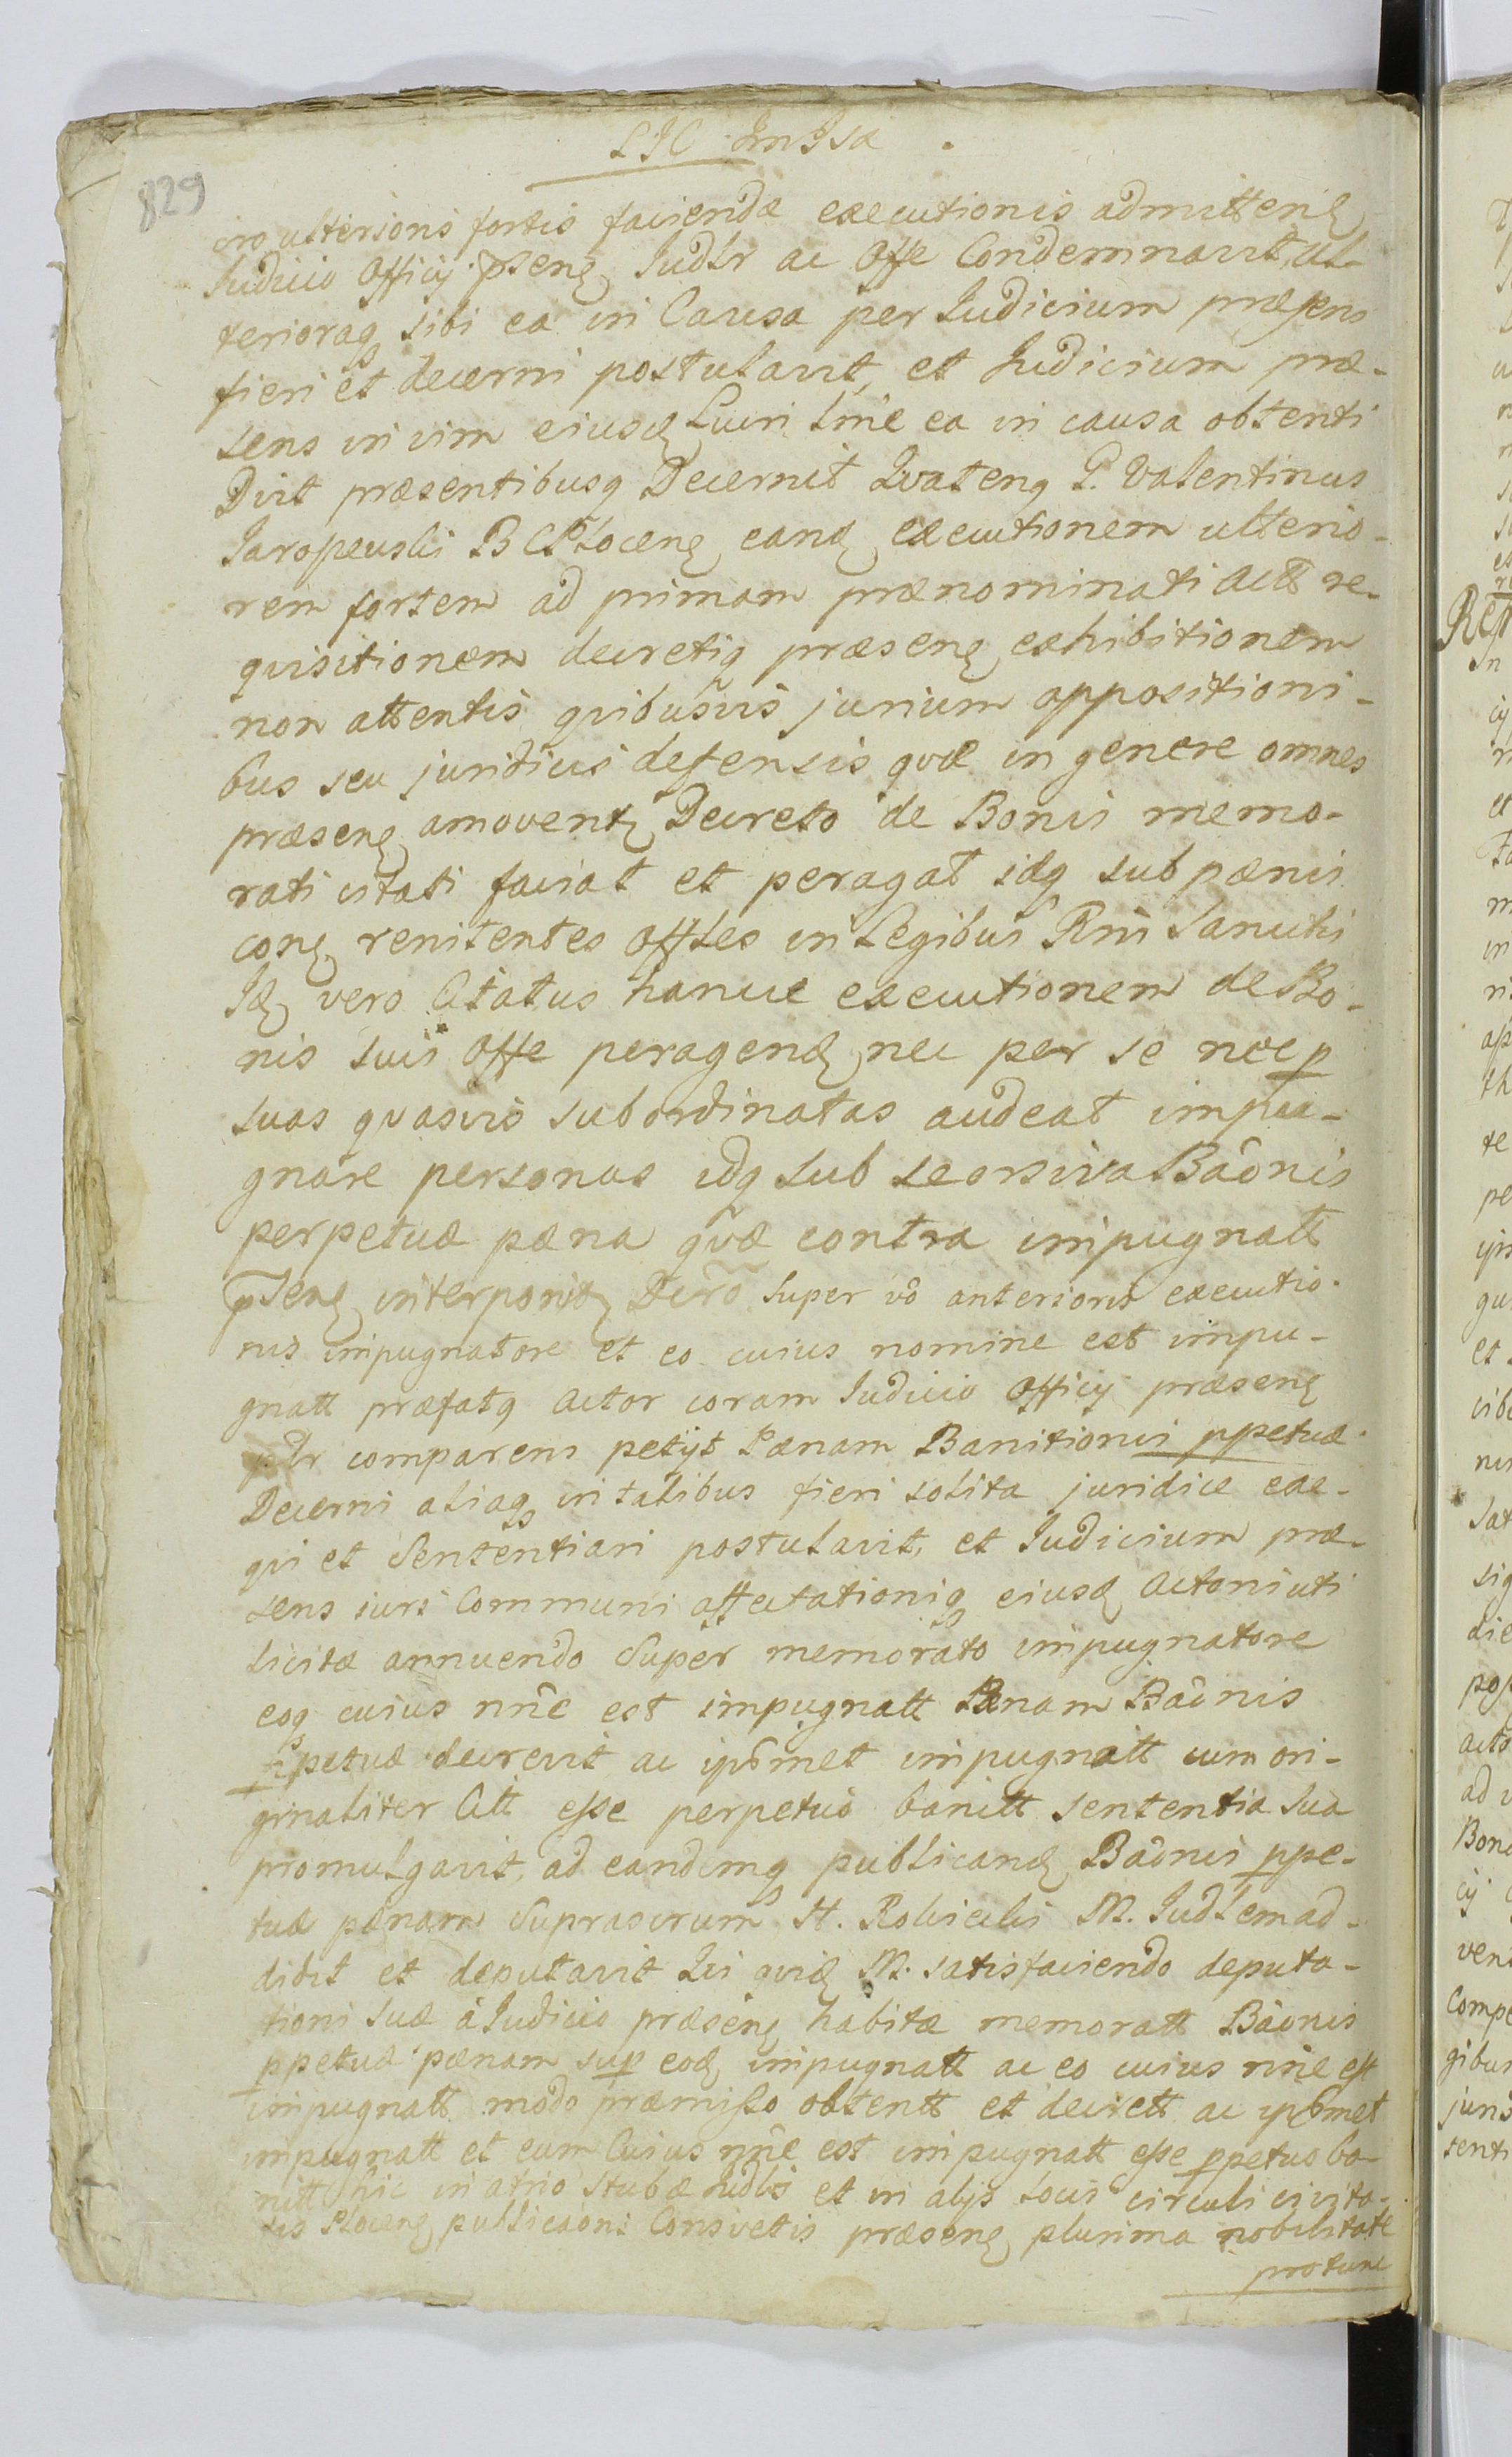 829
iro ulterioris fortis faciendæ executionis admitten
Iudicio Officij psen Iudlr ac Offe Condemnavit, ul-
terioraq sibi ea in Causa per Iudicium præsens
fieri et decerni postulavit, et Iudicium præ-
sens in vim eiusd Lucri ea in causa obtenti
præsentibusq Decernit Qvateng G. Valentinus
Jaropeuski B C Plocen eand executionem ulterio-
rem fortem ad primam prænominati Actt re-
qvisitionem decretiq præsen exhibitionem
non attentis qvibusvis jurium oppositioni-
bus seu juridicis defensis qvæ in genere omnes
præsen amovent Decreto de Bonis memo-
rati citati faciat et peragat idq sub pænis
con renitentes Offles in Legibus Rni Sancitis
Id vero Citatus hancce executionem de Bo-
nis suis Offe peragend nec per se nec p
suas qvasvis subordinatas audeat impu-
gnare personas idq sub seorsiva Bãonis
perpetuæ pæna qvæ contra impugnatt
psen interponit Decrõ Super vô anterioris executio-
nis impugnatore et eo cuius nomine est impu-
gnatt præfatq Actor coram Iudicio Officij præsen
pslr comparens petijt Pænam Banitionis ppetuæ
Decerni aliaq in talibus fieri solita juridice exe-
qvi et Sententiari postulavit, et Iudicium præ-
sens iuri Communi affectationiq eiusd Actoris uti
licitæ annuendo Super memorato impugnatore
eoq cuius nñe est impugnatt Pænam Bãonis
ppetuæ decrevit ac ipsmet impugnatt cum ori-
ginaliter Citt esse perpetuo banitt sententia sua
promulgavit, ad eandemq publicand Bãonis ppe-
tuæ pænam Suprascrum H. Rokicki M. Iudlem ad-
didit et deputavit Qui qvid M. satisfaciendo deputa-
tioni suæ à Iudicio præsen habitæ memoratt Bãonis
ppetuæ pænam sup eod impugnatt ac eo cuius nñe est
impugnatt modo præmisso obtentt et decrett ac ipsmet
impugnatt et eum Cuius nñe est impugnatt esse ppetuo ba-
nitt hic in atrio Stubæ Iudlis et in alijs locis circuli civita-
tis Plocen publicãoni Consvetis præsen plurima nobilitate
protunc